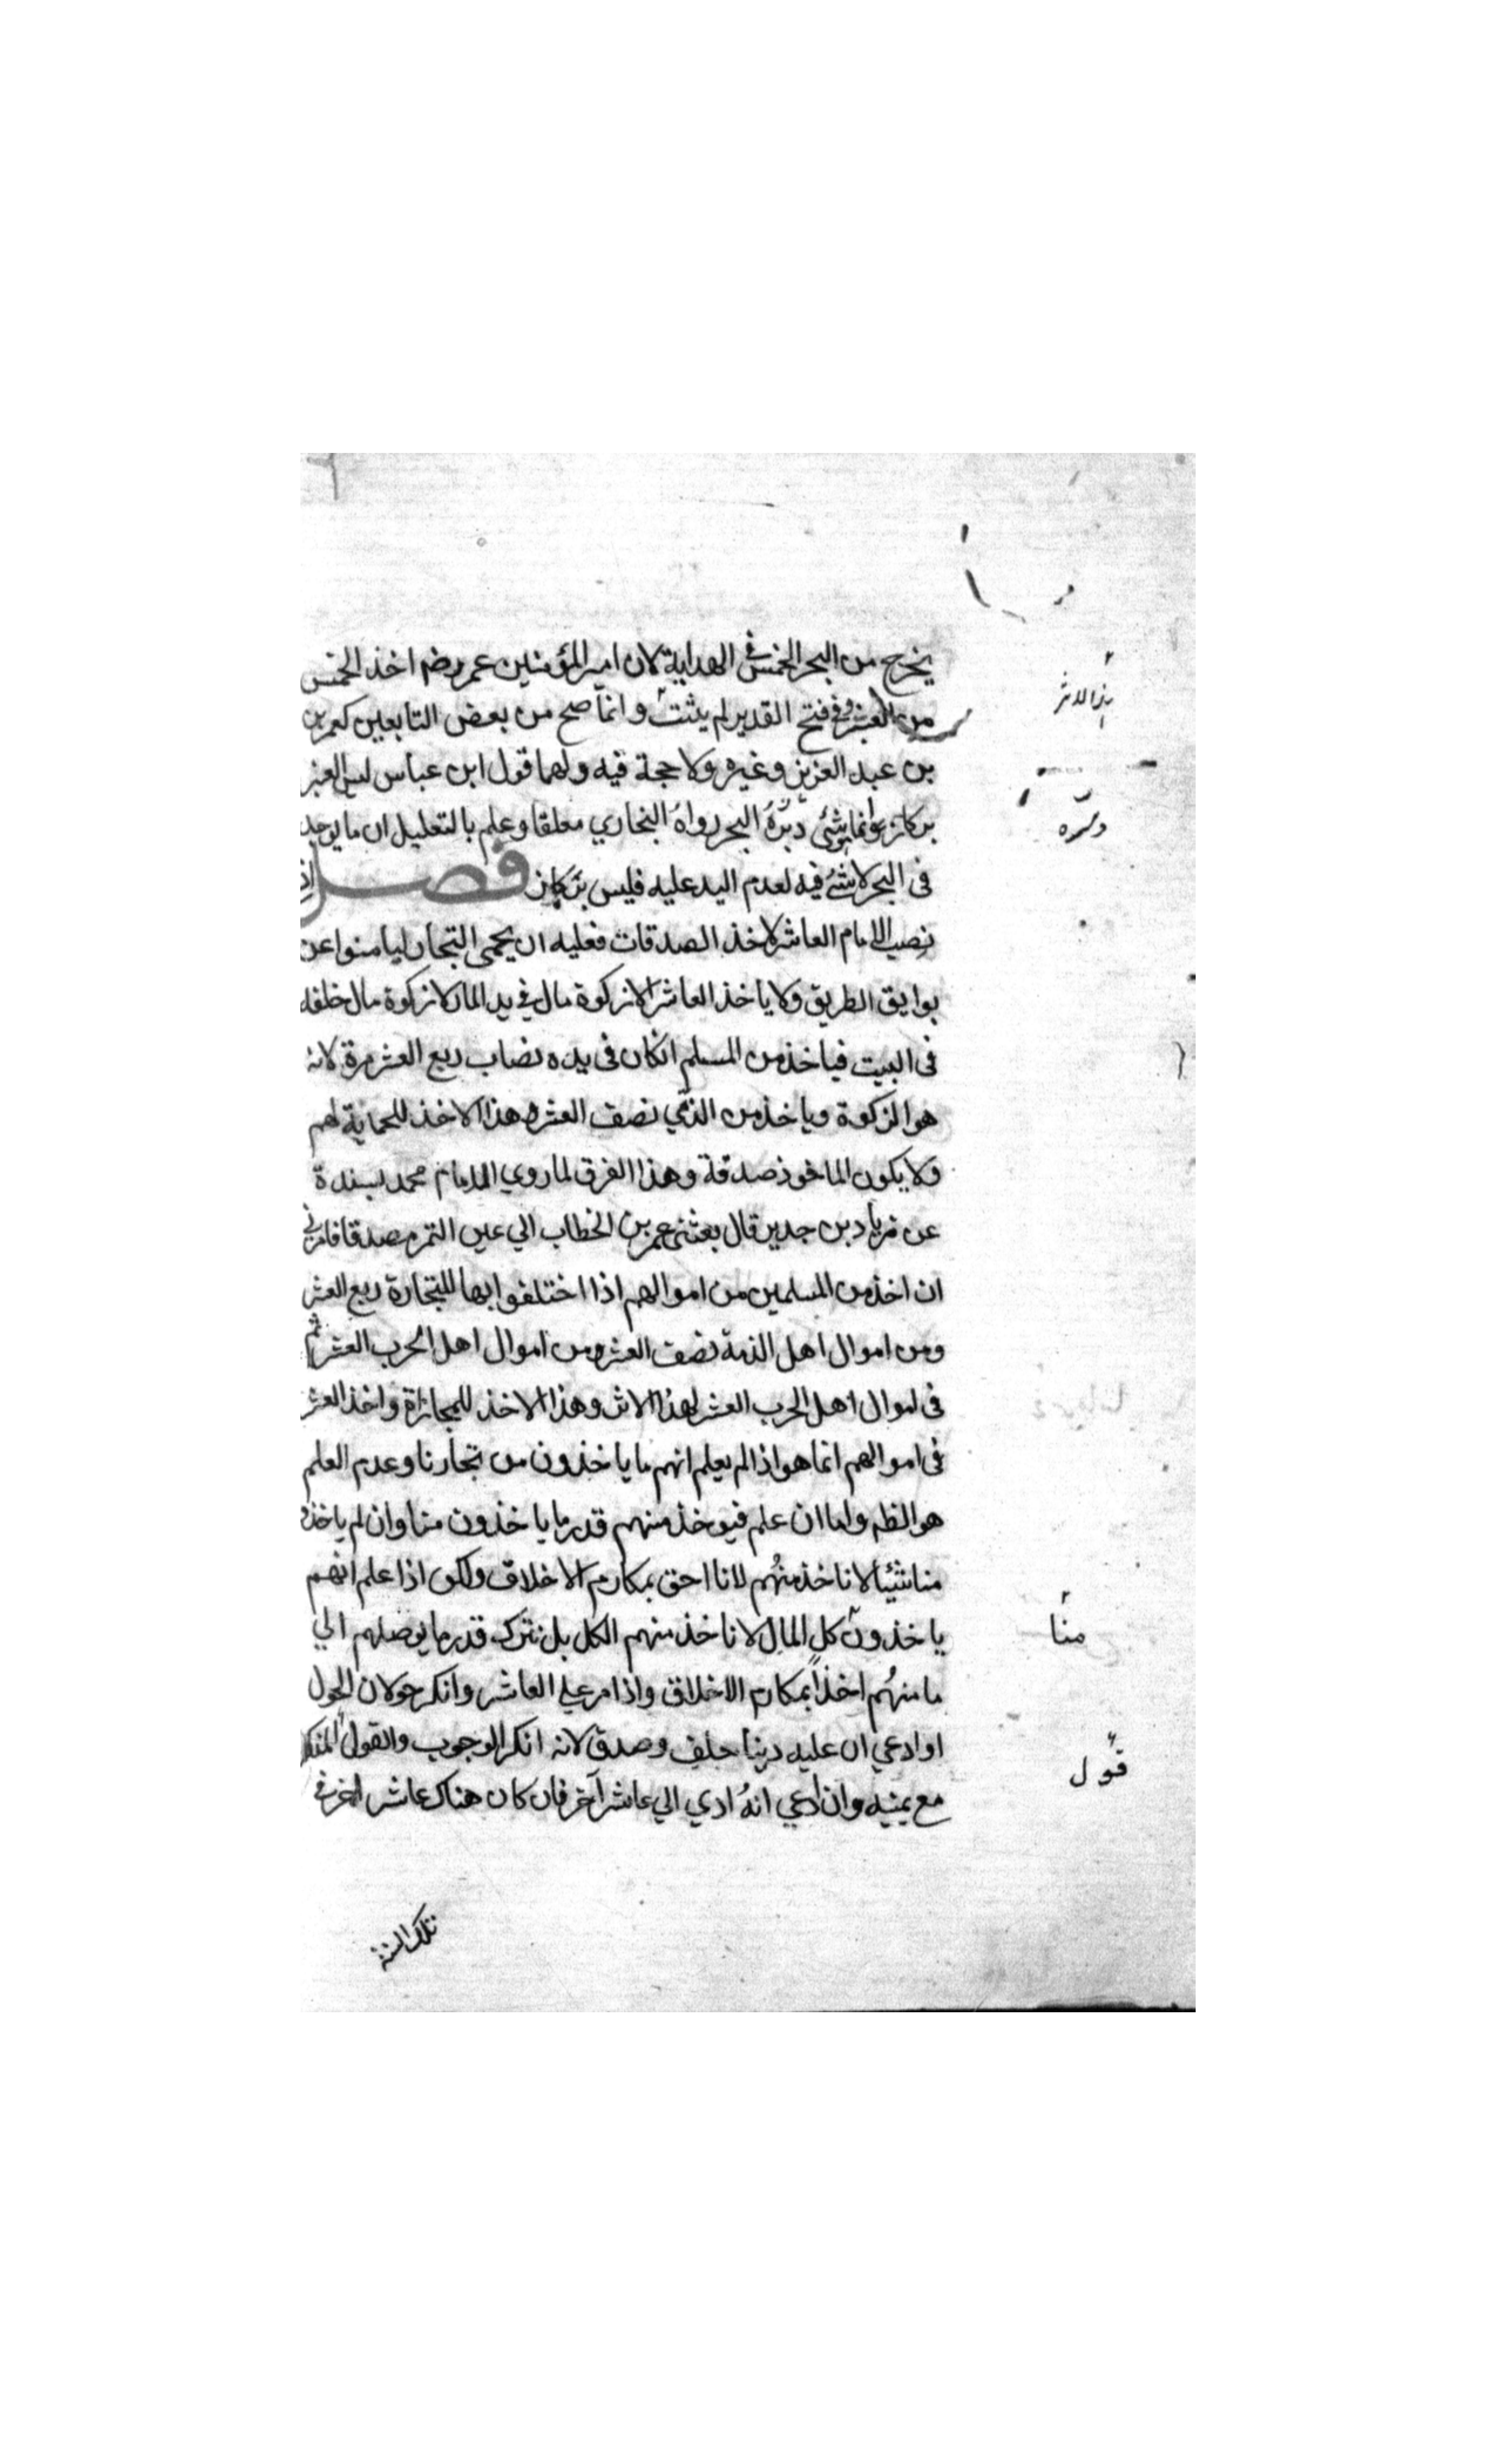 يخرج من البحر الخمس في الهداية لان امير المؤمنين عمر رضه اخذ الخمس
من العنبر وفي فتح القدير لم يثبت وانما صح من بعض التابعين كعمر بن
بن عبد العزيز وغيره ولا حجة فيه ولهما قول ابن عباس ليس العنبر
بركاز وانما شئ دسره البحر رواه البخاري معلقا وعلم بالتعليل ان ما يوجد
فى البحر لا شئ فيه لعدم اليد عليه فليس بركاز فصل اذا
نصب الامام العاشر لاخذ الصدقات فعليه ان يحمى التجار ليامنوا عن
بوايق الطريق ولا ياخذ العاشر الا زكوة مال في يد المار لا زكوة مال خلفه
فى البيت فياخذ من المسلم انكان فى يده نصاب ربع العشر مرة لانه
هو الزكوة وياخذ من الذمي نصف العشر وهذا الاخذ للحماية لهم
ولا يكون الماخوذ صدقة وهذا الفرق لما روي الامام محمد بسنده
عن زياد بن جدير قال بعثنى عمر بن الخطاب الي عين التمر مصدقا فامرني
ان اخذ من المسلمين من اموالهم اذا اختلفوا بها للتجارة ربع العشر
ومن اموال اهل الذمة نصف العشر ومن اموال اهل الحرب العشر ثم
فى اموال اهل الحرب العشر لهذا الاثر وهذا الاخذ للمجازاة واخذ العشر
فى اموالهم انما هو اذا لم يعلم انهم ما ياخذون من تجارنا وعدم العلم
هو الظه واما ان علم فيوخذ منهم قدر ما ياخذون منا وان لم ياخذوا
منا شيئا لا ناخذ منهم لانا احق بمكارم الاخلاق ولكن اذا علم انهم
ياخذون كل المال لا ناخذ منهم الكل بل نترك قدر ما يوصلهم الي
مامنهم اخذا بمكارم الاخلاق واذا مر علي العاشر وانكر حولان الحول
منا
او ادعي ان عليه دينا حلف وصدق لانه انكر الوجوب والقول المنكر
قول
مع يمينه وان ادعي انه ادي الي عاشر آخر فان كان هناك عاشر اخر في
تلك السنة